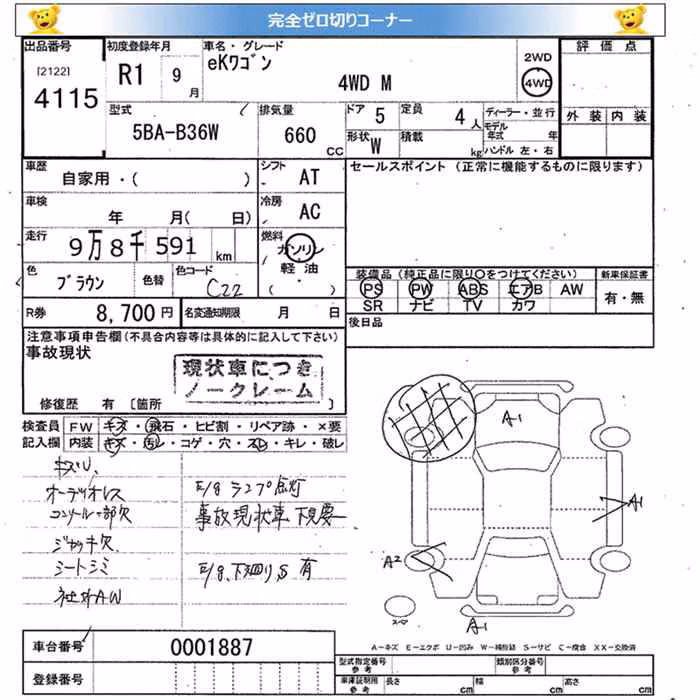 完全ゼロ切りコーナー
出品番号
[2122]
4115
初度登録年月
R1 9月
車名・グレード
eKワゴン
4WD M
2WD
4WD
評価点
外装 内装
型式
5BA-B36W
排気量
660 CC
ドア 5
定員 4人
形状 W
積載 kg
ディーラー・並行
モデル年式 年
ハンドル 左・右
車歴
自家用・( )
シフト AT
セールスポイント (正常に機能するものに限ります)
車検
年 月( 日)
冷房 AC
走行
9万8千591 km
燃料
ガソリン
軽油
・( )
色
ブラウン
色替
色コード
C22
装備品 (純正品に限り○をつけてください)
新車保証書
PS PW ABS エアB AW
SR ナビ TV カワ
有・無
R券 8,700円
名変通知期限 月 日
後日品
注意事項申告欄(不具合内容等は具体的に記入して下さい)
事故現状
現状車につき
ノークレーム
修復歴 有 [箇所 ]
検査員 FW キズ・飛石・ヒビ割・リペア跡・×要
記入欄 内装 キズ・汚レ・コゲ・穴・スレ・キレ・破レ
キズU
オーディオレス
E/gランプ点灯
コンソール一部欠
事故現状車 下見要
ジャッキ欠
シートシミ
E/g,下廻りS有
社外AW
A1
A1
A2
A1
スペア
A-キズ E-エクボ U-凹み W-補修跡 S-サビ C-腐食 XX-交換済
車台番号
0001887
登録番号
型式指定番号
参考
類別区分番号
参考
車庫証明用
参考
長さ cm
幅 cm
高さ cm